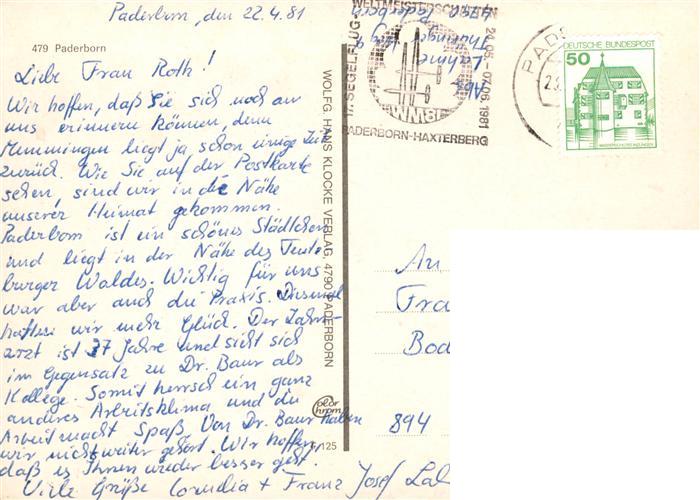 Paderborn, den 22.4.81
479 Paderborn
Liebe Frau Roth!
Wir hoffen, daß Sie sich noch an
uns erinnern können, denn
Memmingen liegt ja schon einige Zeit
zurück. Wie Sie auf der Postkarte
sehen, sind wir in die Nähe
unserer Heimat gekommen.
Paderborn ist ein schönes Städtchen
und liegt in der Nähe des Teuto
burger Waldes. Wichtig für uns
war aber auch die Praxis. Diesmal
hatten wir mehr Glück. Der Zahn-
arzt ist 37 Jahre und sieht sich
im Gegensatz zu Dr. Baur als
Kollege. Somit herrscht ein ganz
anderes Arbeitsklima und die
Arbeit macht Spaß. Von Dr. Baur haben
wir nichts weiter gehört. Wir hoffen,
daß es Ihnen wieder besser geht.
Viele Grüße Cornelia + Franz Josef
WOLFG. HANS KLOCKE VERLAG, 4790 PADERBORN
125
Abs.
4790 Paderborn
17. SEGELFLUG-
WELTMEISTERSCHAFTEN
24.05.-07.06.1981
WMSF
PADERBORN-HAXTERBERG
DEUTSCHE BUNDESPOST
50
An
Fra
Bod
894